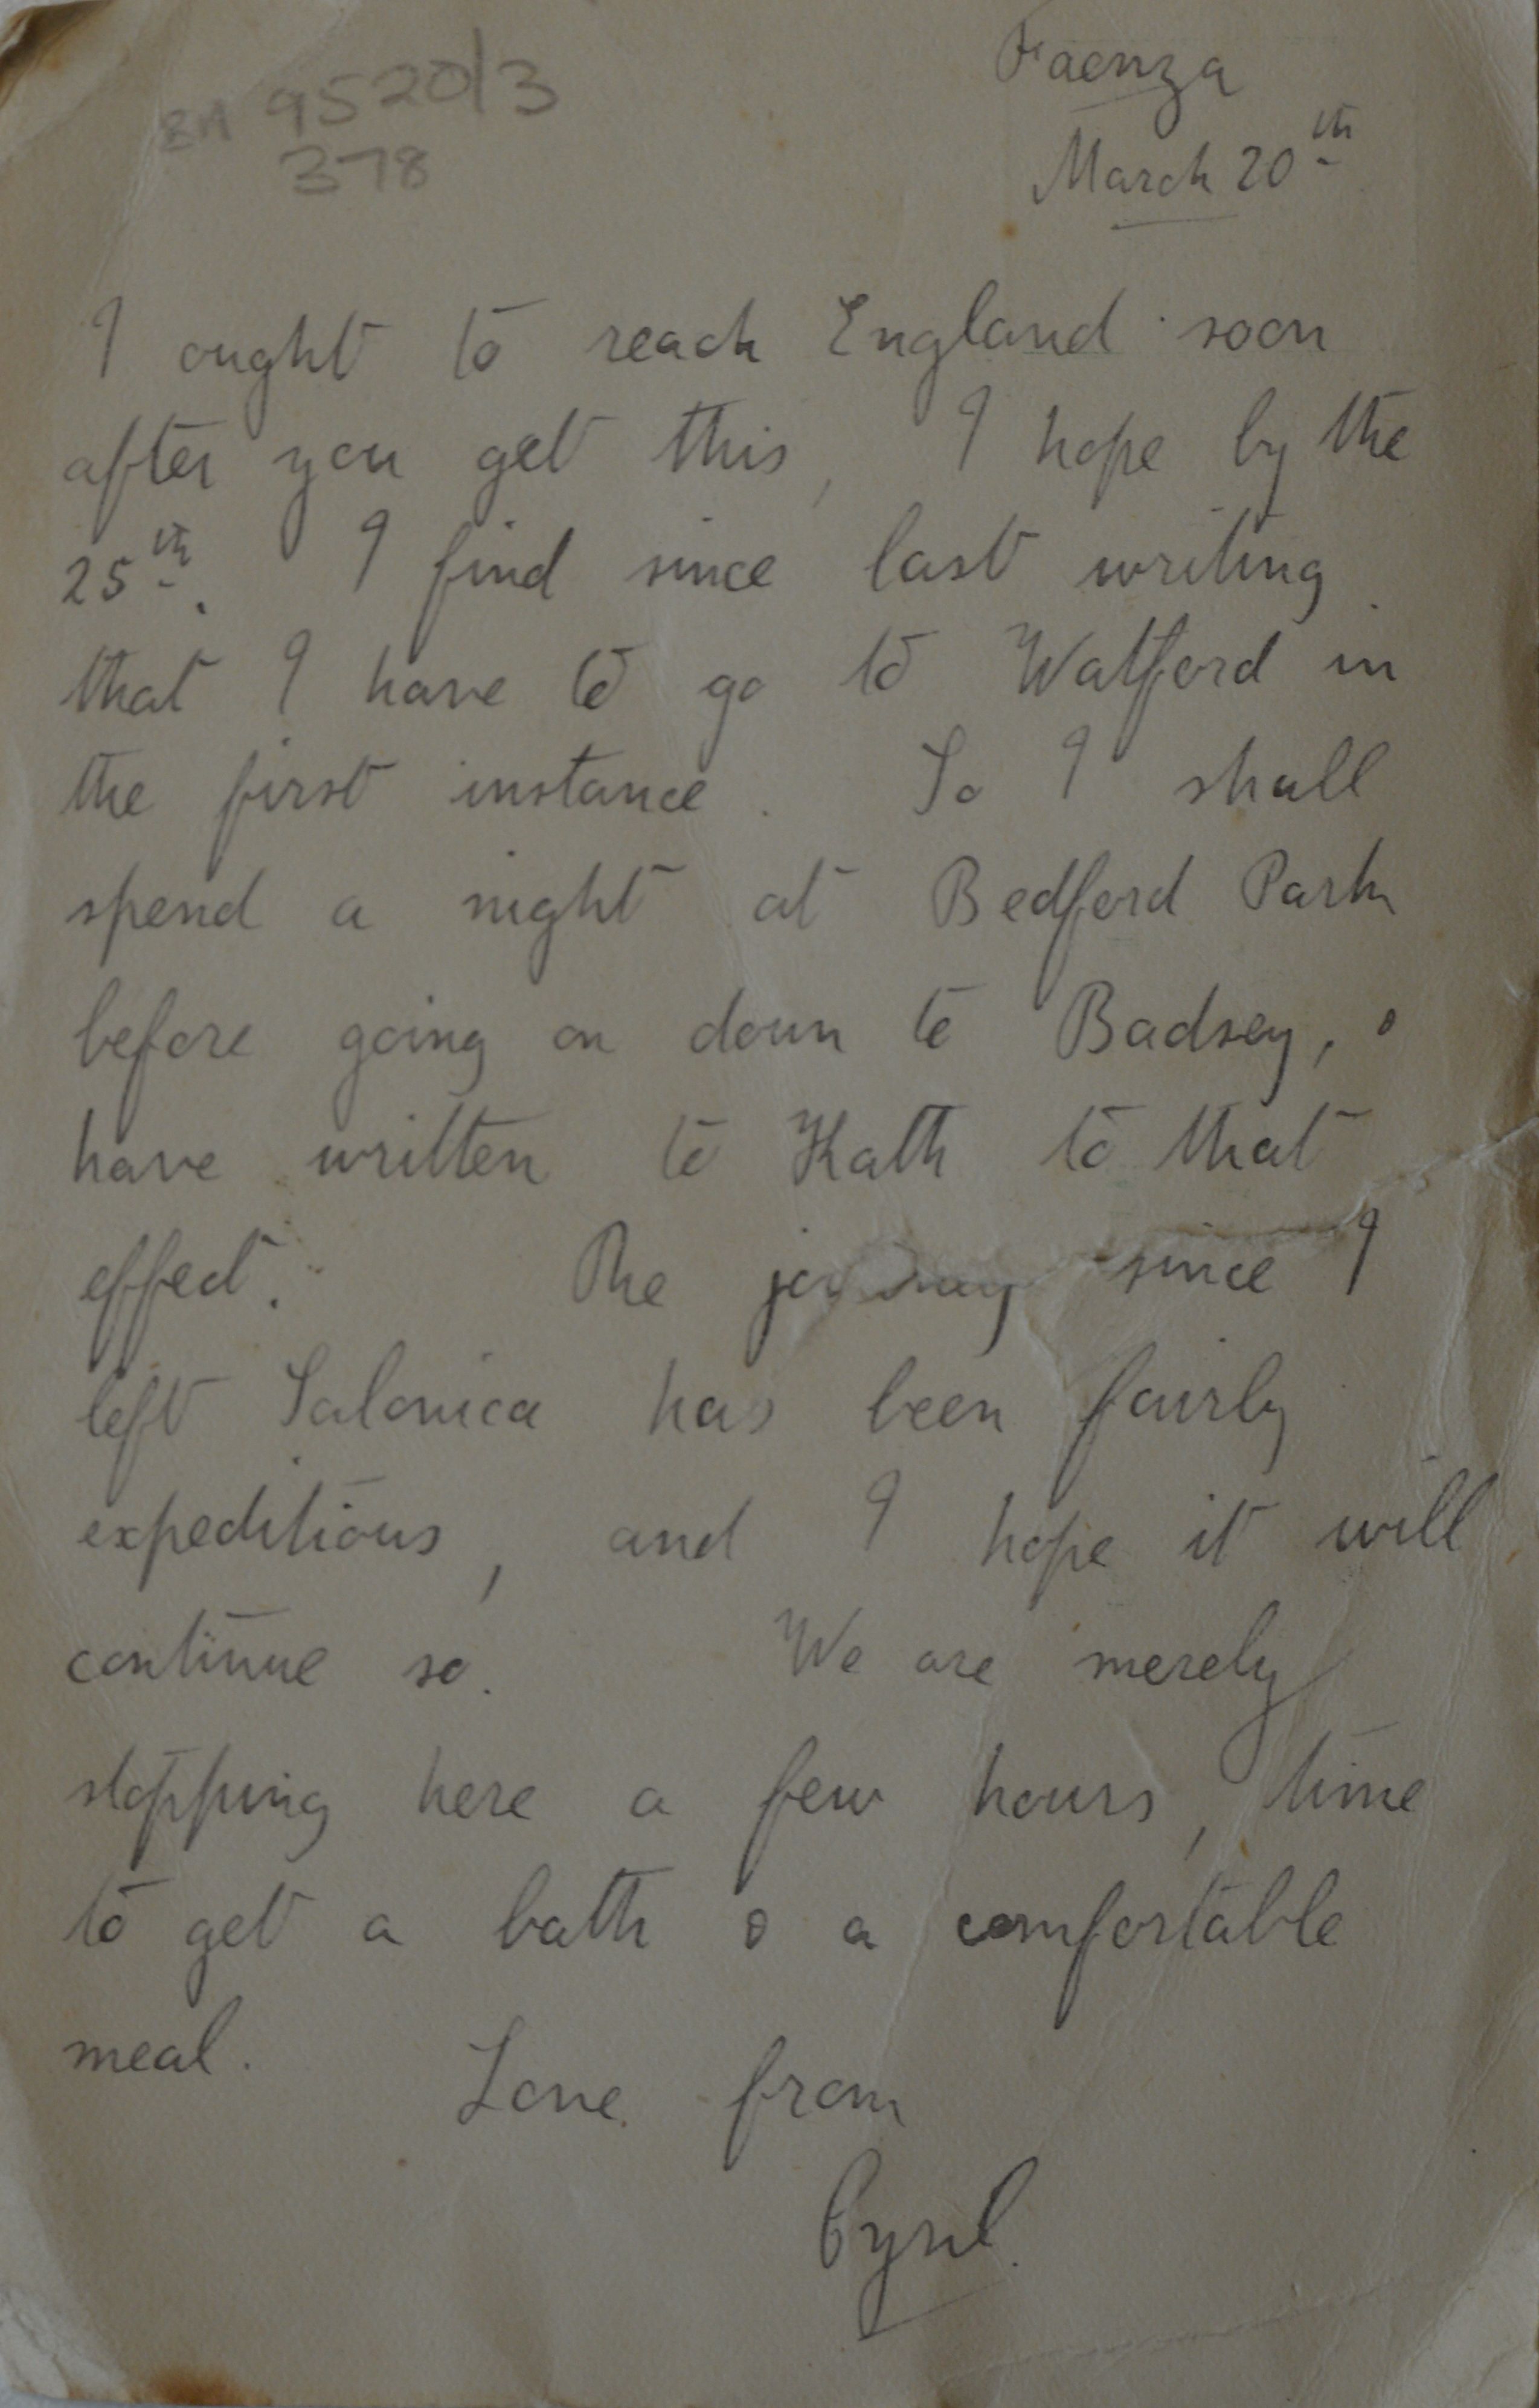 9520/3
378
Faenza
March 20th
I ought to reach England soon
after you get this, I hope by the
25th. I find since last writing
that I have to go to Watford in
the first instance. So I shall
spend a night at Bedford Park
before going on down to Badsey, &
have written to Kath to that
effect. The journey since I
left Salonica has been fairly
expeditious, and I hope it will
continue so. We are merely
stopping here a few hours, time
to get a bath & a comfortable
meal.
Love from
Cyril.